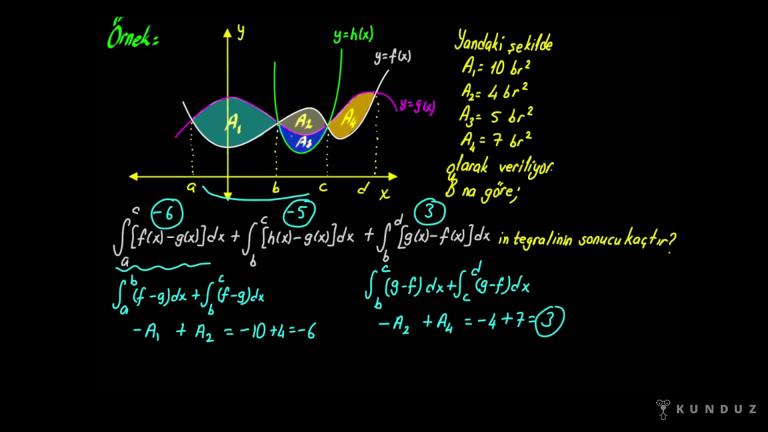 Örnek:
y
y=h(x)
y=f(x)
y=g(x)
A₁
A₂
A₃
A₄
a
b
c
d
x
Yandaki şekilde
A₁= 10 br²
A₂= 4 br²
A₃= 5 br²
A₄= 7 br²
olarak veriliyor.
B na göre;
-6
-5
3
∫ₐᶜ[f(x)-g(x)]dx + ∫ᵇᶜ[h(x)-g(x)]dx + ∫ᵇᵈ[g(x)-f(x)]dx integralinin sonucu kaçtır?
∫ₐᵇ(f-g)dx + ∫ᵇᶜ(f-g)dx
-A₁ + A₂ = -10+4=-6
∫ᵇᶜ(g-f)dx + ∫ᶜᵈ(g-f)dx
-A₂ + A₄ = -4+7=3
KUNDUZ